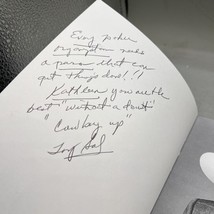 Every poker
organization needs
a person that can
get things done!!
Kathleen you are the
best "without a doubt"
"Cowboy up"